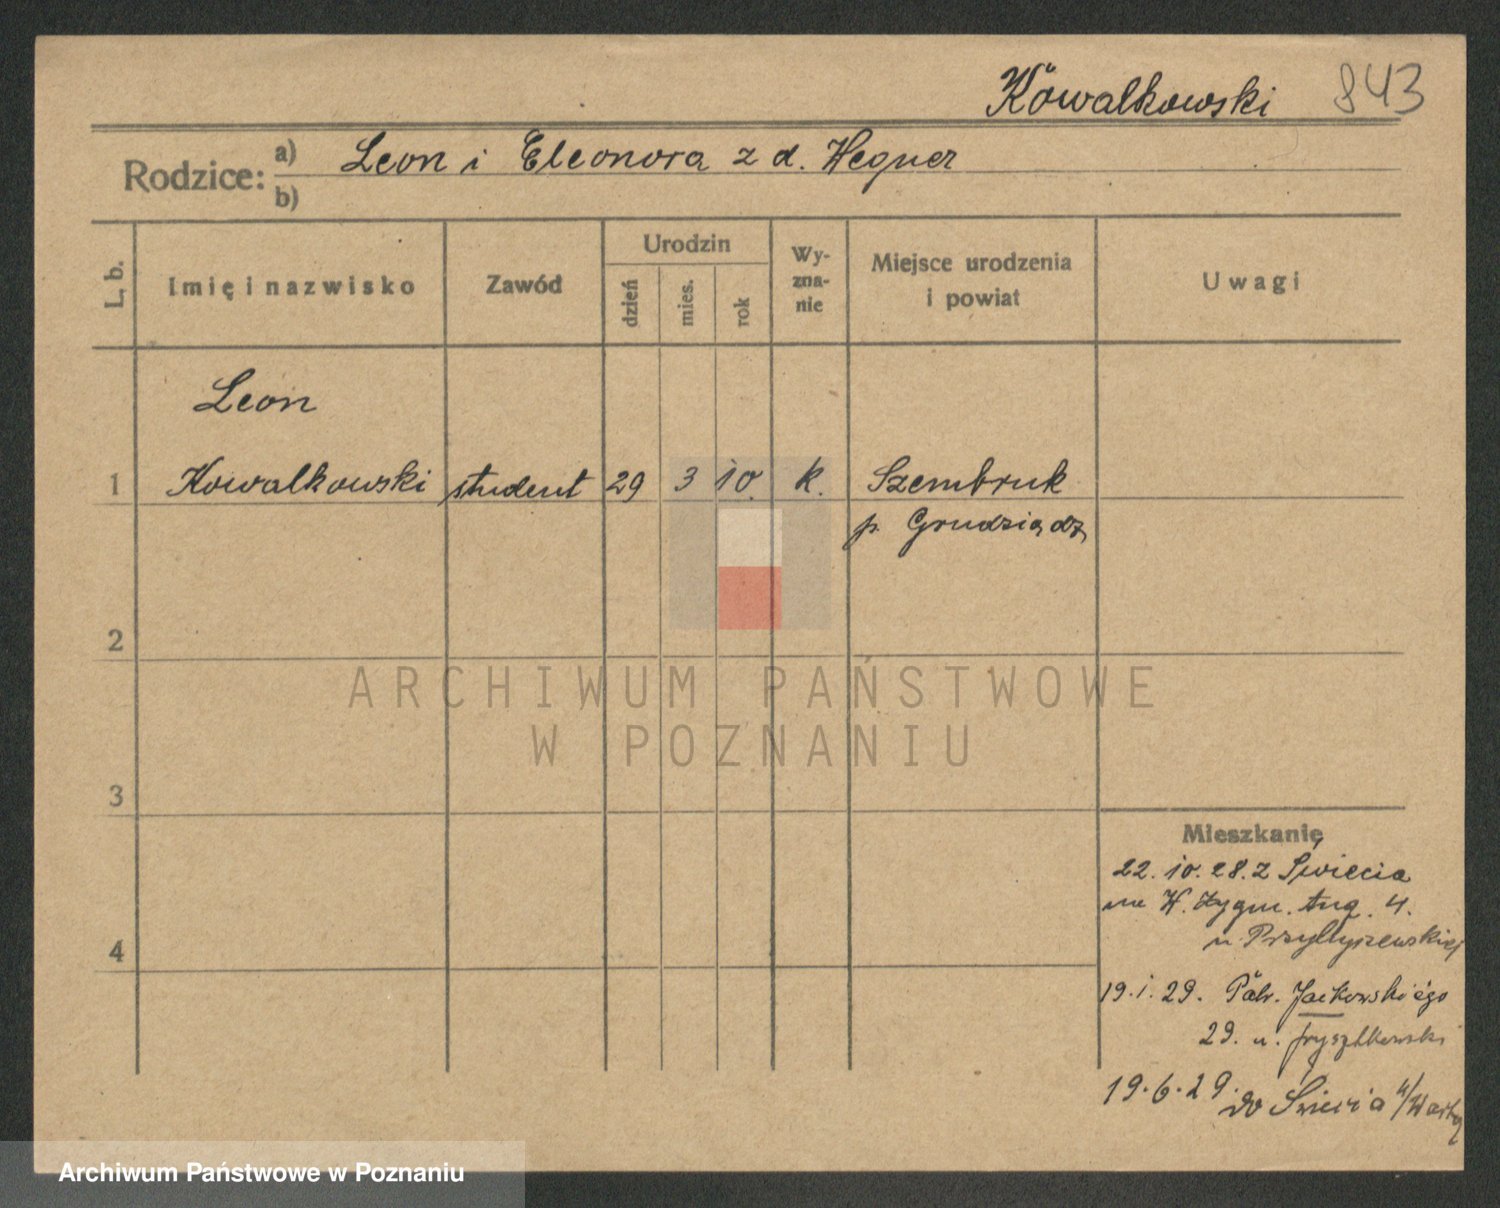 Kowalkowski 843
Rodzice: a) Leon i Eleonora z d. Hegner
b)
L. b.
Imię i nazwisko
Zawód
Urodzin
dzień
mies.
rok
Wy-
zna-
nie
Miejsce urodzenia
i powiat
Uwagi
Leon
1 Kowalkowski student 29 3 10. k. Szembruk
p. Grudziądz
2
3
4
Mieszkanie
22. 10. 28. z Świecia
na W. Zygm. Aug. 4.
u Przybyszewskiej
19. 1. 29. Patr. Jackowskiego
29. u.
19. 6. 29. do Świecia n/Wartą
ARCHIWUM PAŃSTWOWE
W POZNANIU
Archiwum Państwowe w Poznaniu